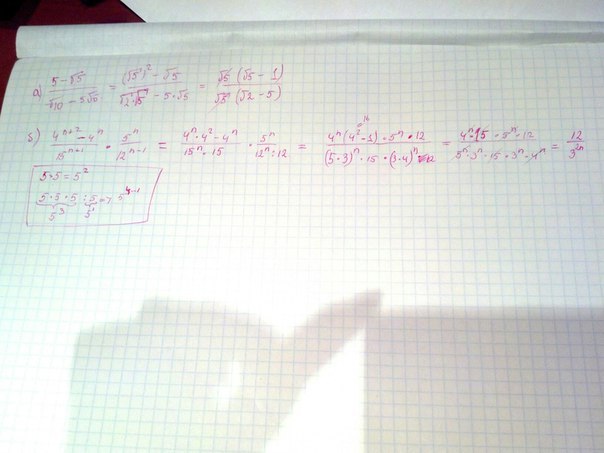 а) (5 - √5)/(√10 - 5√5) = ((√5)² - √5)/(√2·√5 - 5·√5) = (√5 (√5 - 1))/(√5 (√2 - 5))
б) (4ⁿ⁺² - 4ⁿ)/(15ⁿ⁺¹) · 5ⁿ/(12ⁿ⁻¹) = (4ⁿ · 4² - 4ⁿ)/(15ⁿ · 15) · 5ⁿ/(12ⁿ : 12) = (4ⁿ (4² - 1) · 5ⁿ · 12)/((5·3)ⁿ · 15 · (3·4)ⁿ) = (4ⁿ · 15 · 5ⁿ · 12)/(5ⁿ · 3ⁿ · 15 · 3ⁿ · 4ⁿ) = 12/3²ⁿ
16
5·5 = 5²
5·5·5 : 5 => 5
5³ 5¹